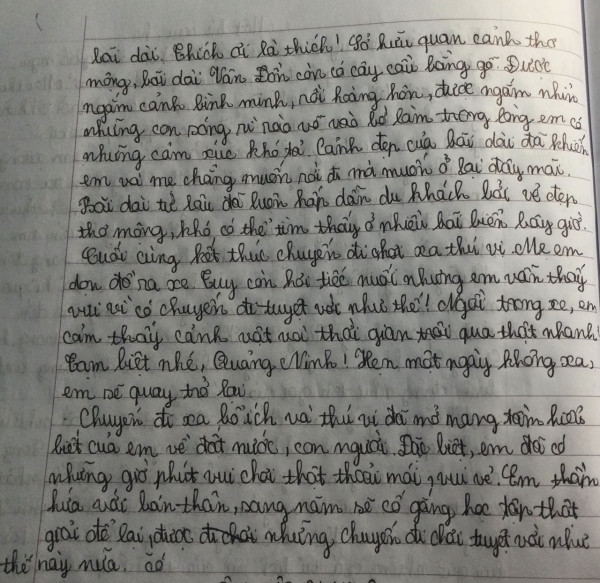 bãi dài. Thích ơi là thích! Sở hữu quan cảnh thơ
mộng, bãi dài Vân Đồn còn có cây cầu bằng gỗ. Được
ngắm cảnh bình minh, rồi hoàng hôn, được ngắm nhìn
những con sóng rì rào vỗ vào bờ làm trong lòng em có
những cảm xúc khó tả. Cảnh đẹp của bãi dài đã khiến
em và mẹ chẳng muốn rời đi mà muốn ở lại đây mãi.
Bãi dài từ lâu đã luôn hấp dẫn du khách bởi vẻ đẹp
thơ mộng, khó có thể tìm thấy ở nhiều bãi biển bây giờ.
Cuối cùng kết thúc chuyến đi chơi xa thú vị. Mẹ em
dọn đồ ra xe. Tuy còn hơi tiếc nuối nhưng em vẫn thấy
vui vì có chuyến đi tuyệt vời như thế! Ngồi trong xe, em
cảm thấy cảnh vật và thời gian trôi qua thật nhanh!
Tạm biệt nhé, Quảng Ninh! Hẹn một ngày không xa,
em sẽ quay trở lại.
- Chuyến đi xa bổ ích và thú vị đã mở mang tầm hiểu
biết của em về đất nước, con người. Đặc biệt, em đã có
những giờ phút vui chơi thật thoải mái, vui vẻ. Em thầm
hứa với bản thân, sang năm sẽ cố gắng học tập thật
giỏi để lại được đi chơi những chuyến đi chơi tuyệt vời như
thế này nữa.